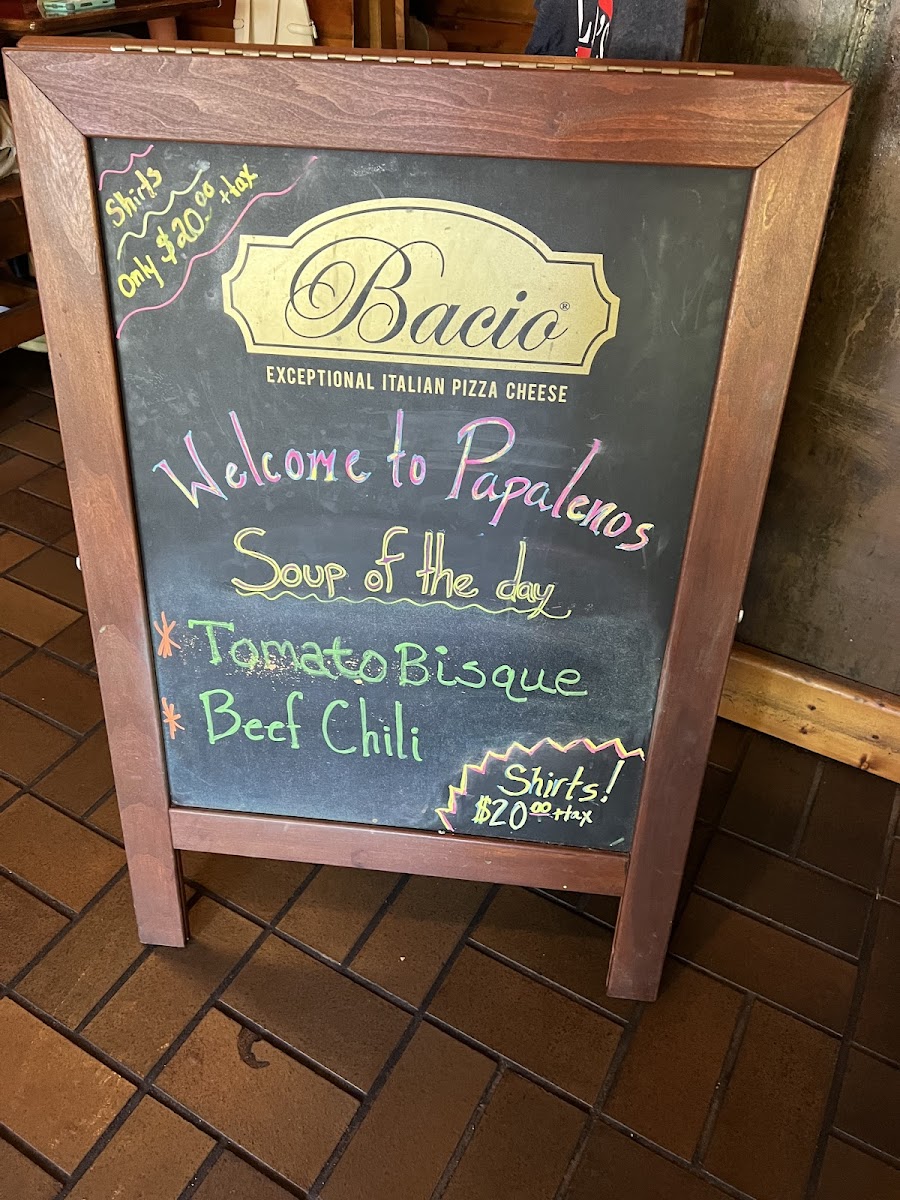 Shirts
only $20.00 +tax
Bacio®
EXCEPTIONAL ITALIAN PIZZA CHEESE
Welcome to Papalenos
Soup of the day
* Tomato Bisque
* Beef Chili
Shirts!
$20.00 +tax